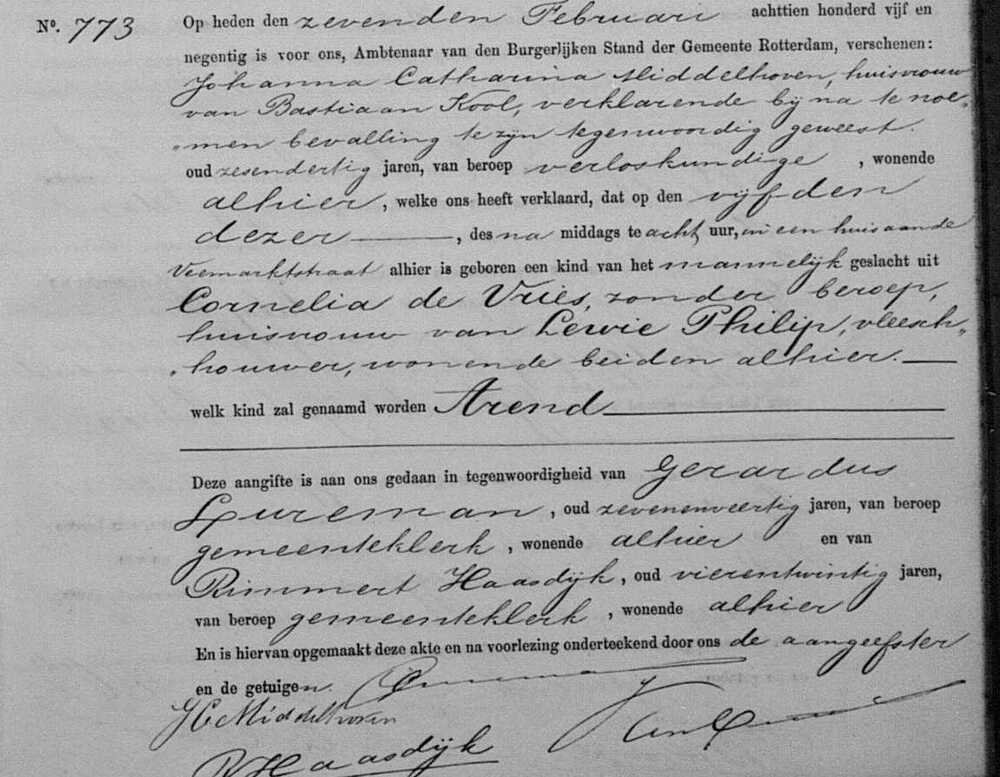 No. 773 Op heden den zevenden Februari achttien honderd vijf en
negentig is voor ons, Ambtenaar van den Burgerlijken Stand der Gemeente Rotterdam, verschenen:
Johanna Catharina Middelhoven, huisvrouw
van Bastiaan Kool, verklarende bij na te noe„
„men bevalling te zijn tegenwoordig geweest.
oud zesendertig jaren, van beroep verloskundige, wonende
alhier, welke ons heeft verklaard, dat op den vijfden
dezer, des na middags te acht uur, in een huis aan de
Veemarktstraat alhier is geboren een kind van het mannelijk geslacht uit
Cornelia de Vries, zonder beroep,
huisvrouw van Lewie Philip, vleesch„
„houwer, wonende beiden alhier.
welk kind zal genaamd worden Arend
Deze aangifte is aan ons gedaan in tegenwoordigheid van Gerardus
Lureman, oud zevenenveertig jaren, van beroep
gemeenteklerk, wonende alhier en van
Rimmert Haasdijk, oud vierentwintig jaren,
van beroep gemeenteklerk, wonende alhier
En is hiervan opgemaakt deze akte en na voorlezing onderteekend door ons de aangeefster
en de getuigen.
J C Middelhoven
R Haasdijk